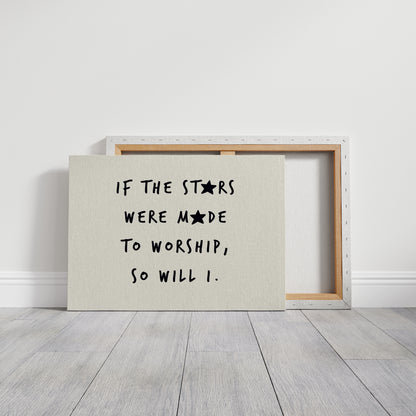 IF THE ST★RS
WERE M★DE
TO WORSHIP,
SO WILL I.